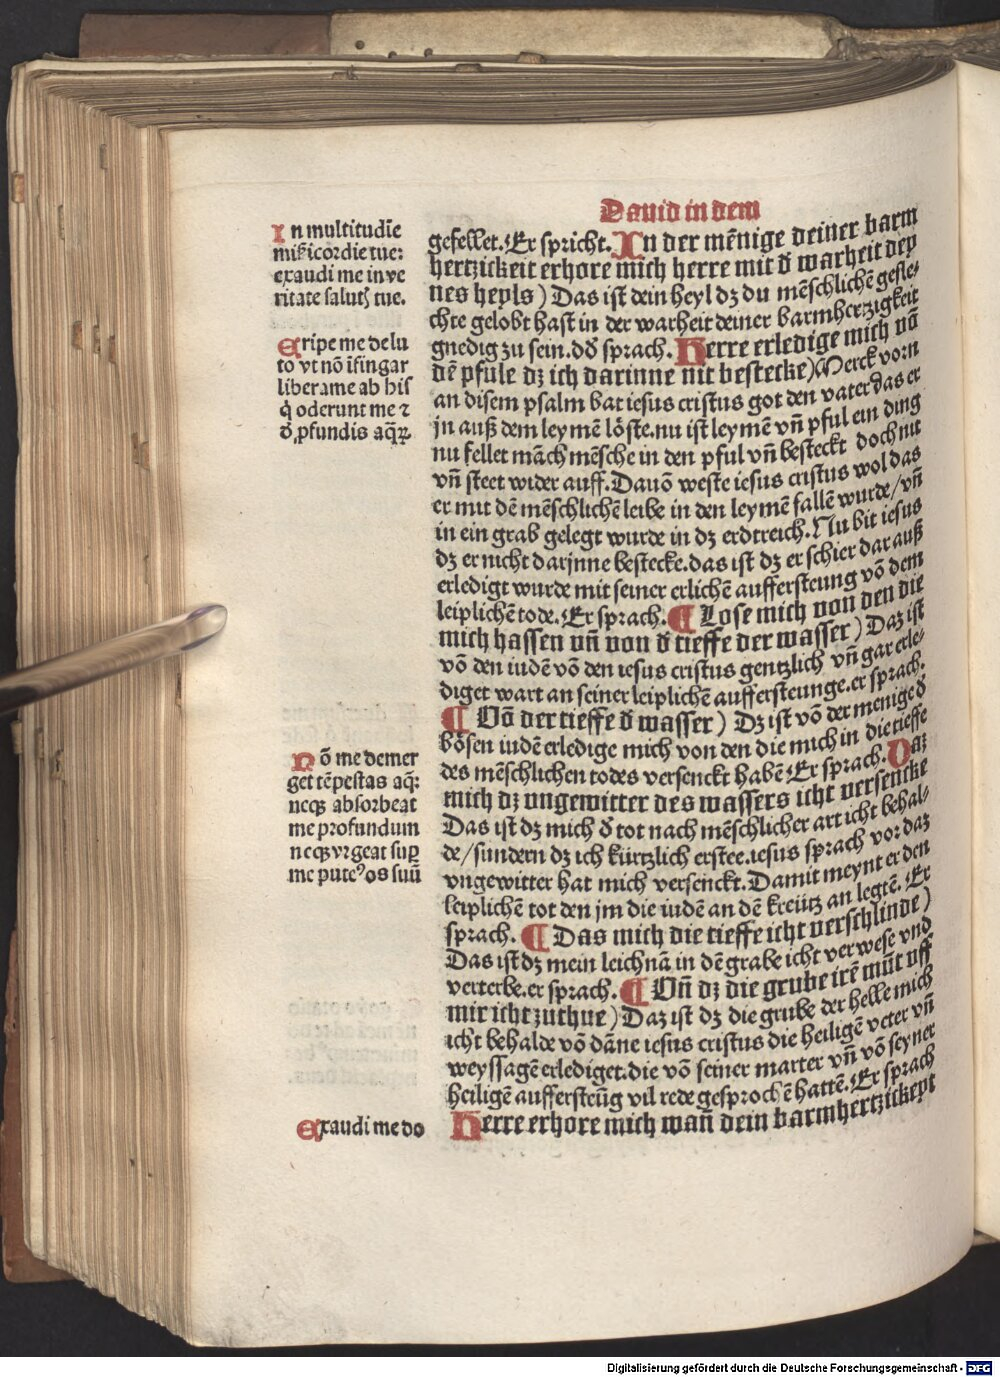 Dauid in dem
In multitudīe
mīs̄icordie tue:
exaudi me in ve
ritate salutꝭ tue.
Eripe me de lu
to vt nō īfingar
libera me ab his
q̄ oderunt me ⁊
ð ꝓfundis aq̄ꝝ
Nō me demer
get tēpestas aq̄:
neqꝫ absorbeat
me profundum
neqꝫ vrgeat suꝑ
me puteꝰ os suū
Exaudi me do
gefellet. Er spricht. In der mēnige deiner barm
hertzickeit erhore mich herre mit ð warheit dey
nes heyls) Das ist dein heyl dꝫ du mēschlichē gesle-
chte gelobt hast in der warheit deiner barmherzigkeit
gnedig zu sein. dð sprach. Herre erledige mich vō
dē pfule dꝫ ich darinne nit bestecke) Merck vorn
an disem psalm bat iesus cristus got den vater das er
jn auß dem leymē löste. nu ist leymē vn̄ pful ein ding
nu fellet māch mēsche in den pful vn̄ besteckt doch nit
vn̄ steet wider auff. Dauō weste iesus cristus wol das
er mit dē mēschlichē leibe in den leymē fallē wurde/ vn̄
in ein grab gelegt wurde in dꝫ erdtreich. Nu bit iesus
dꝫ er nicht darjnne bestecke. das ist dꝫ er schier dar auß
erledigt wurde mit seiner erlichē aufferstēung vō dem
leiplichē tode. Er sprach. ¶ Lose mich von den die
mich hassen vn̄ von ð tieffe der wasser) Daz ist
vō den iudē vō den iesus cristus gentzlich vn̄ gar erle-
diget wart an seiner leiplichē aufferstēunge. er sprach.
¶ Uō der tieffe ð wasser) Dꝫ ist vō der menige ð
bösen iudē erledige mich von den die mich in die tieffe
des mēschlichen todes versenckt habē Er sprach. Daz
mich dꝫ vngewitter des wassers icht versencke
Das ist dꝫ mich ð tot nach mēschlicher art icht behal-
de/ sundern dꝫ ich kürtzlich erstee. iesus sprach vor daz
vngewitter hat mich versenckt. Damit meynt er den
leiplichē tot den jm die iudē an dē kreütz an legtē. Er
sprach. ¶ Das mich die tieffe icht verschlinde)
Das ist dꝫ mein leichnā in dē grabe icht verwese vnd
verterbe. er sprach. ¶ Un̄ dꝫ die grube irē mūt vff
mir icht zuthue) Daz ist dꝫ die grube der helle mich
icht behalde vō dāne iesus cristus die heiligē veter vn̄
weyssagē erlediget. die vō seiner marter vn̄ vō seyner
heiligē aufferstēūg vil rede gesprochē hattē. Er sprach
Herre erhore mich wan̄ dein barmhertzickeyt
Digitalisierung gefördert durch die Deutsche Forschungsgemeinschaft - DFG